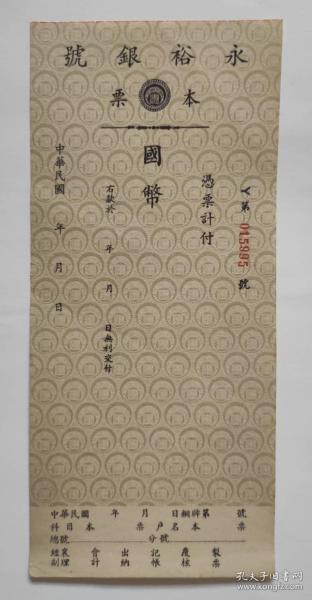 永裕銀號
本票
Y第015995號
憑票計付
國幣
右款於 年 月 日無利交付
中華民國 年 月 日
中華民國 年 月 日 欄牌第 號
科目 本票 戶名 本票
總號 分號
經副襄理 會計 出納 記帳 覆核 製票
孔夫子旧书网